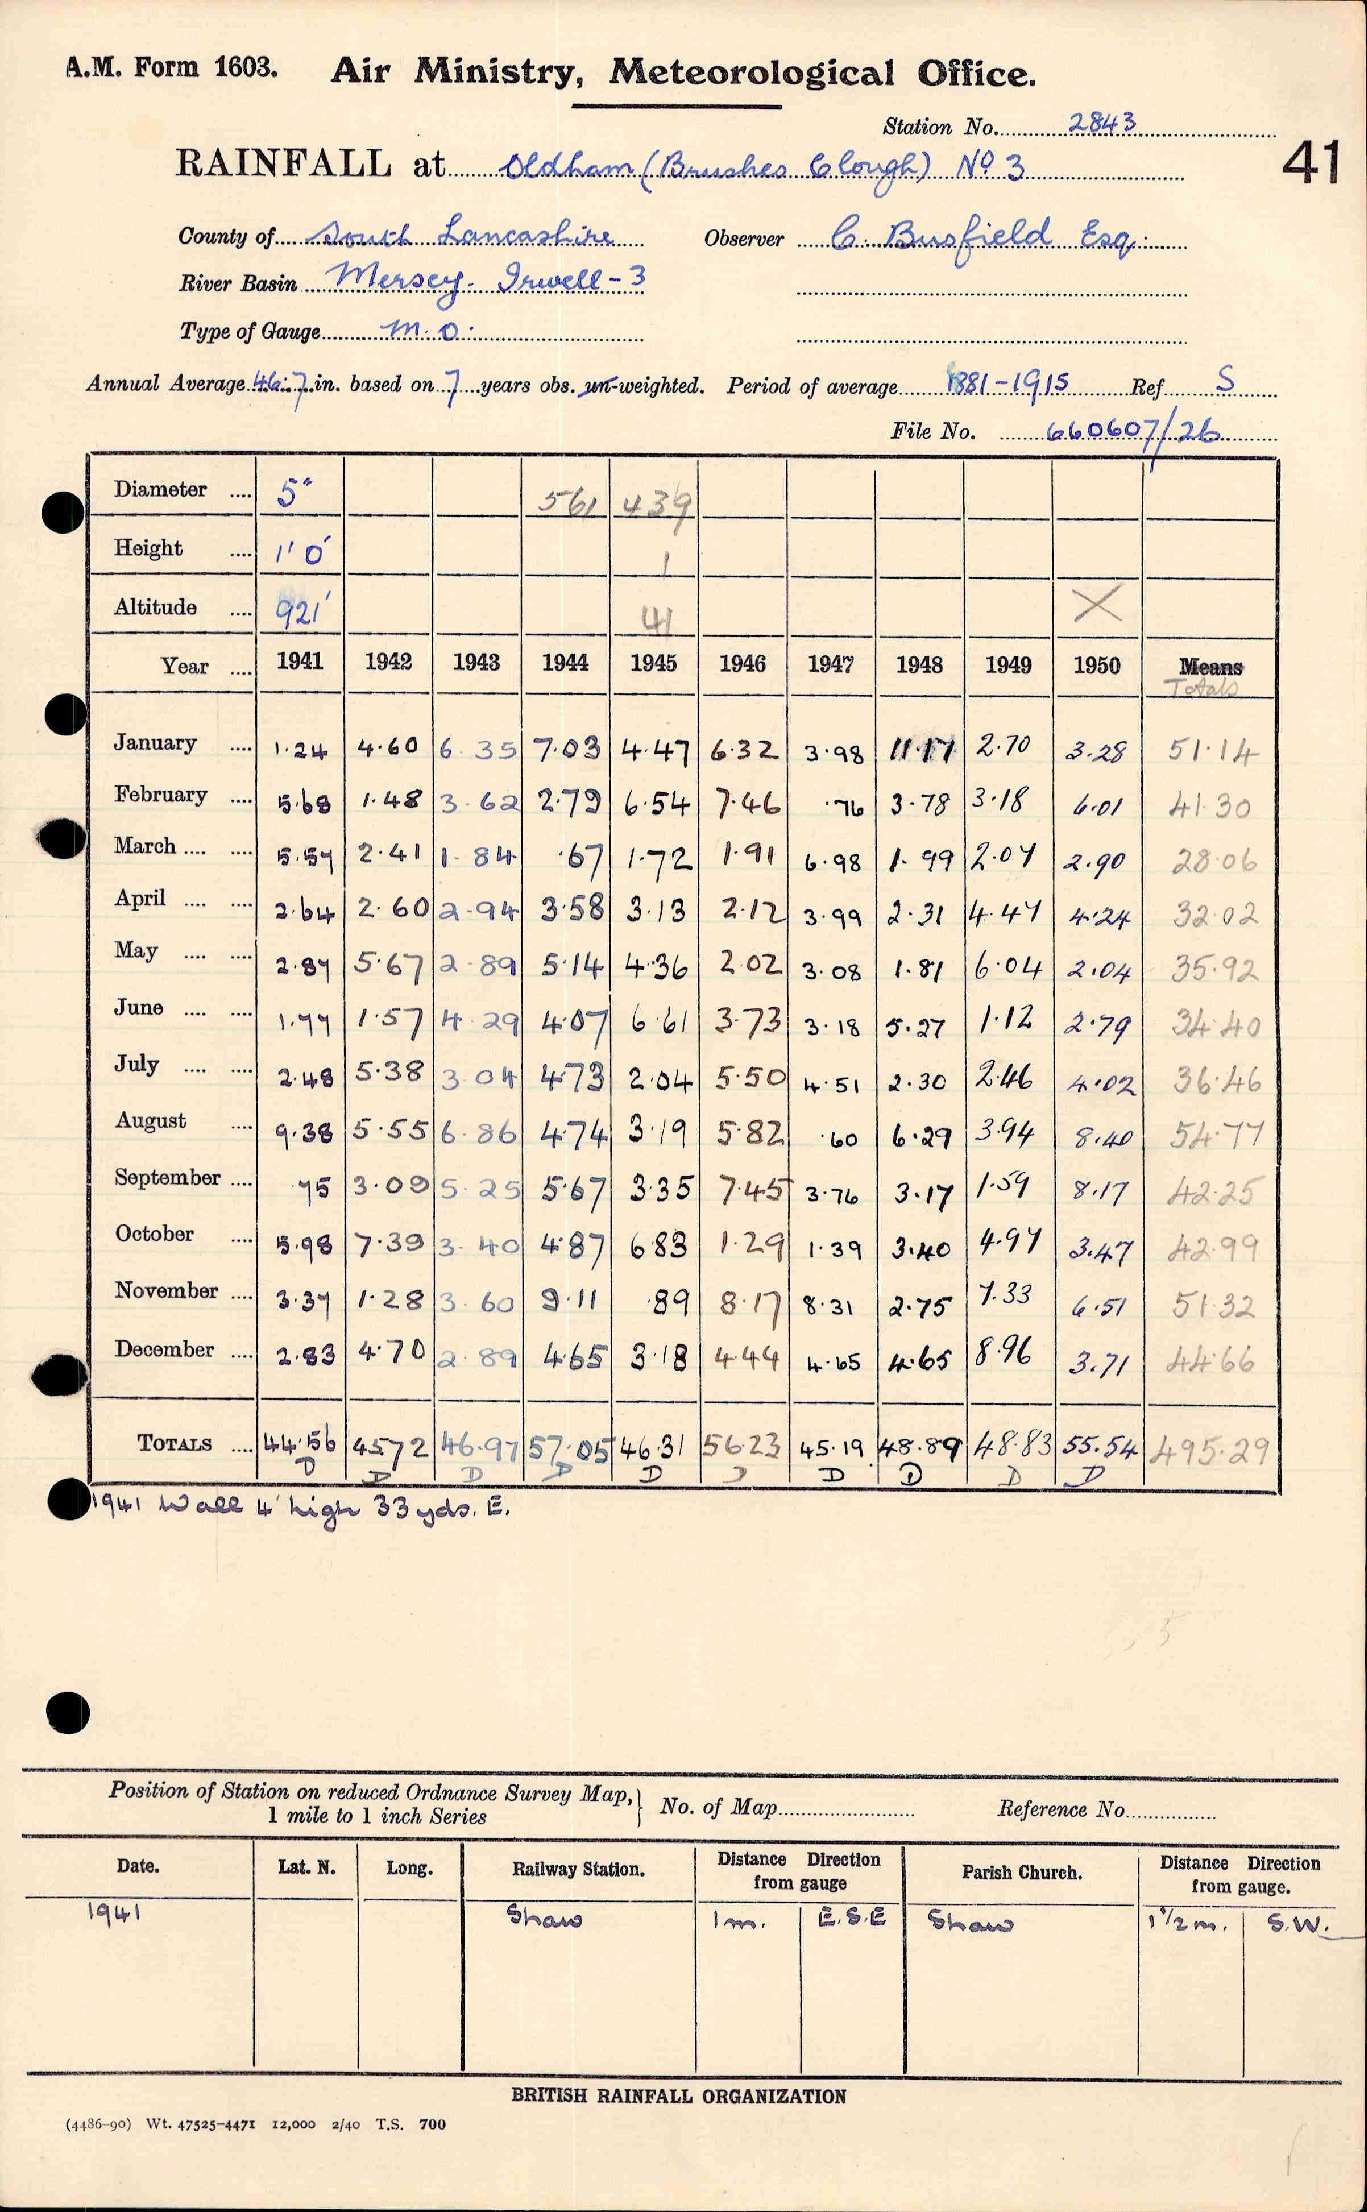 A.M. Form 1603. Air Ministry, Meteorological Office.
Station No. 2843
41
RAINFALL at Oldham (Brushes Clough) No 3
County of South Lancashire Observer C. Busfield Esq.
River Basin Mersey. Irwell-3
Type of Gauge M.O.
Annual Average 46.7 in. based on 7 years obs. un-weighted. Period of average 1881-1915 Ref S
File No. 660607/26
Diameter .... 5" 561 439
Height .... 1'0" 1
Altitude .... 921' 41 X
Year .... 1941 1942 1943 1944 1945 1946 1947 1948 1949 1950 Means
Totals
January .... 1.24 4.60 6.35 7.03 4.47 6.32 3.98 11.17 2.70 3.28 51.14
February .... 5.68 1.48 3.62 2.79 6.54 7.46 .76 3.78 3.18 6.01 41.30
March .... .... 5.57 2.41 1.84 .67 1.72 1.91 6.98 1.99 2.07 2.90 28.06
April .... .... 2.64 2.60 2.94 3.58 3.13 2.12 3.99 2.31 4.47 4.24 32.02
May .... .... 2.87 5.67 2.89 5.14 4.36 2.02 3.08 1.81 6.04 2.04 35.92
June .... .... 1.77 1.57 4.29 4.07 6.61 3.73 3.18 5.27 1.12 2.79 34.40
July .... .... 2.48 5.38 3.04 4.73 2.04 5.50 4.51 2.30 2.46 4.02 36.46
August .... 9.38 5.55 6.86 4.74 3.19 5.82 .60 6.29 3.94 8.40 54.77
September .... .75 3.09 5.25 5.67 3.35 7.45 3.76 3.17 1.59 8.17 42.25
October .... 5.98 7.39 3.40 4.87 6.83 1.29 1.39 3.40 4.97 3.47 42.99
November .... 3.37 1.28 3.60 9.11 .89 8.17 8.31 2.75 7.33 6.51 51.32
December .... 2.83 4.70 2.89 4.65 3.18 4.44 4.65 4.65 8.96 3.71 44.66
TOTALS .... 44.56 45.72 46.97 57.05 46.31 56.23 45.19 48.89 48.83 55.54 495.29
D D D D D D D D D D
1941 Wall 4' high 33 yds. E.
Position of Station on reduced Ordnance Survey Map, } No. of Map Reference No.
1 mile to 1 inch Series
Date. Lat. N. Long. Railway Station. Distance from gauge Direction Parish Church. Distance from gauge. Direction
1941 Shaw 1m. E.S.E Shaw 1½m. S.W.
BRITISH RAINFALL ORGANIZATION
(4486-90) Wt. 47525-4471 12,000 2/40 T.S. 700